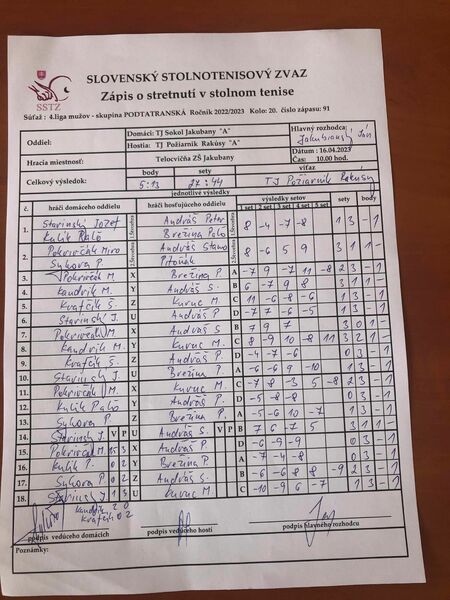 SLOVENSKÝ STOLNOTENISOVÝ ZVAZ
Zápis o stretnutí v stolnom tenise
SSTZ
Súťaž : 4.liga mužov - skupina PODTATRANSKÁ Ročník 2022/2023 Kolo: 20. číslo zápasu: 91
Oddiel: Domáci: TJ Sokol Jakubany "A" Hlavný rozhodca:
Hostia: TJ Požiarnik Rakúsy "A"
Hracia miestnosť: Telocvičňa ZŠ Jakubany Dátum : 16.04.2023
Čas: 10.00 hod.
body sety víťaz
Celkový výsledok: 5:13 27:44 TJ Požiarnik Rakúsy
jednotlivé výsledky
č. hráči domáceho oddielu hráči hosťujúceho oddielu výsledky setov sety body
1 set 2 set 3 set 4 set 5 set
1. Starinský Jozef Andráš Peter 8 -4 -7 -8 1 3 -1
Kulik Palo Brežina Palo
2. Pokrivčák Miro Andráš Stano 8 -6 5 9 3 1 1 -
Sykora P.
3. Pokrivčák M. X Brežina P. A -7 9 -7 11 -8 2 3 - 1
4. Kandrik M. Y Andráš S. B 6 -7 9 8 3 1 1 -
5. Kvafčik Š. Z Kuruc M. C 11 -6 -8 -6 1 3 - 1
6. Starinský J. U Andráš P. D
7. Pokrivčák M. X Andráš S. B 7 9 7 3 0 1 -
8. Kandrik M. Y Kuruc M. C 8 -9 10 -8 11 3 2 1 -
9. Kvafčik Š. Z Andráš P. D -4 -7 -6 0 3 - 1
10. Starinský J. U Brežina P. A
11. Pokrivčák M. X Kuruc M. C -7 8 3 5 -8 2 3 - 1
12. Kulik Palo Y Andráš P. D -5 -8 -8 0 3 - 1
13. Sykora P. Z Brežina P. A -5 -6 10 -7 1 3 - 1
14. Starinský J. V P U Andráš S. V P B
15. Pokrivčák M. X Andráš P. D -6 -9 -9 0 3 - 1
16. Kulik P. 0 2 Y Brežina P. A -7 -4 -8 0 3 - 1
17. Sykora P. 0 2 Z Andráš S. B -6 -6 8 8 -9 2 3 - 1
18. Starinský J. 1 3 U Kuruc M. C -10 -9 6 -7 1 3 - 1
Kandrik 2 0
Kvafčik 0 2
podpis vedúceho domácich podpis vedúceho hostí podpis hlavného rozhodcu
Poznámky: